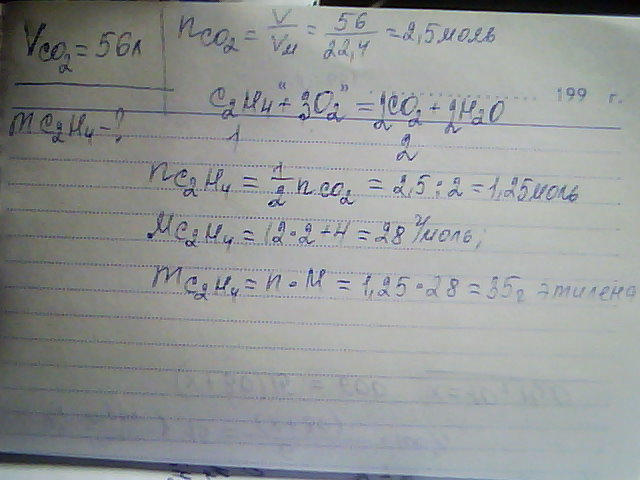 V CO₂ = 56л
n CO₂ = V/Vм = 56/22,4 = 2,5 моль
" " 199 г.
C₂H₄ + 3O₂ = 2CO₂ + 2H₂O
m C₂H₄ - ?
1 2
n C₂H₄ = 1/2 n CO₂ = 2,5 : 2 = 1,25 моль
M C₂H₄ = 12·2+4 = 28 г/моль;
m C₂H₄ = n · M = 1,25·28 = 35г этилена